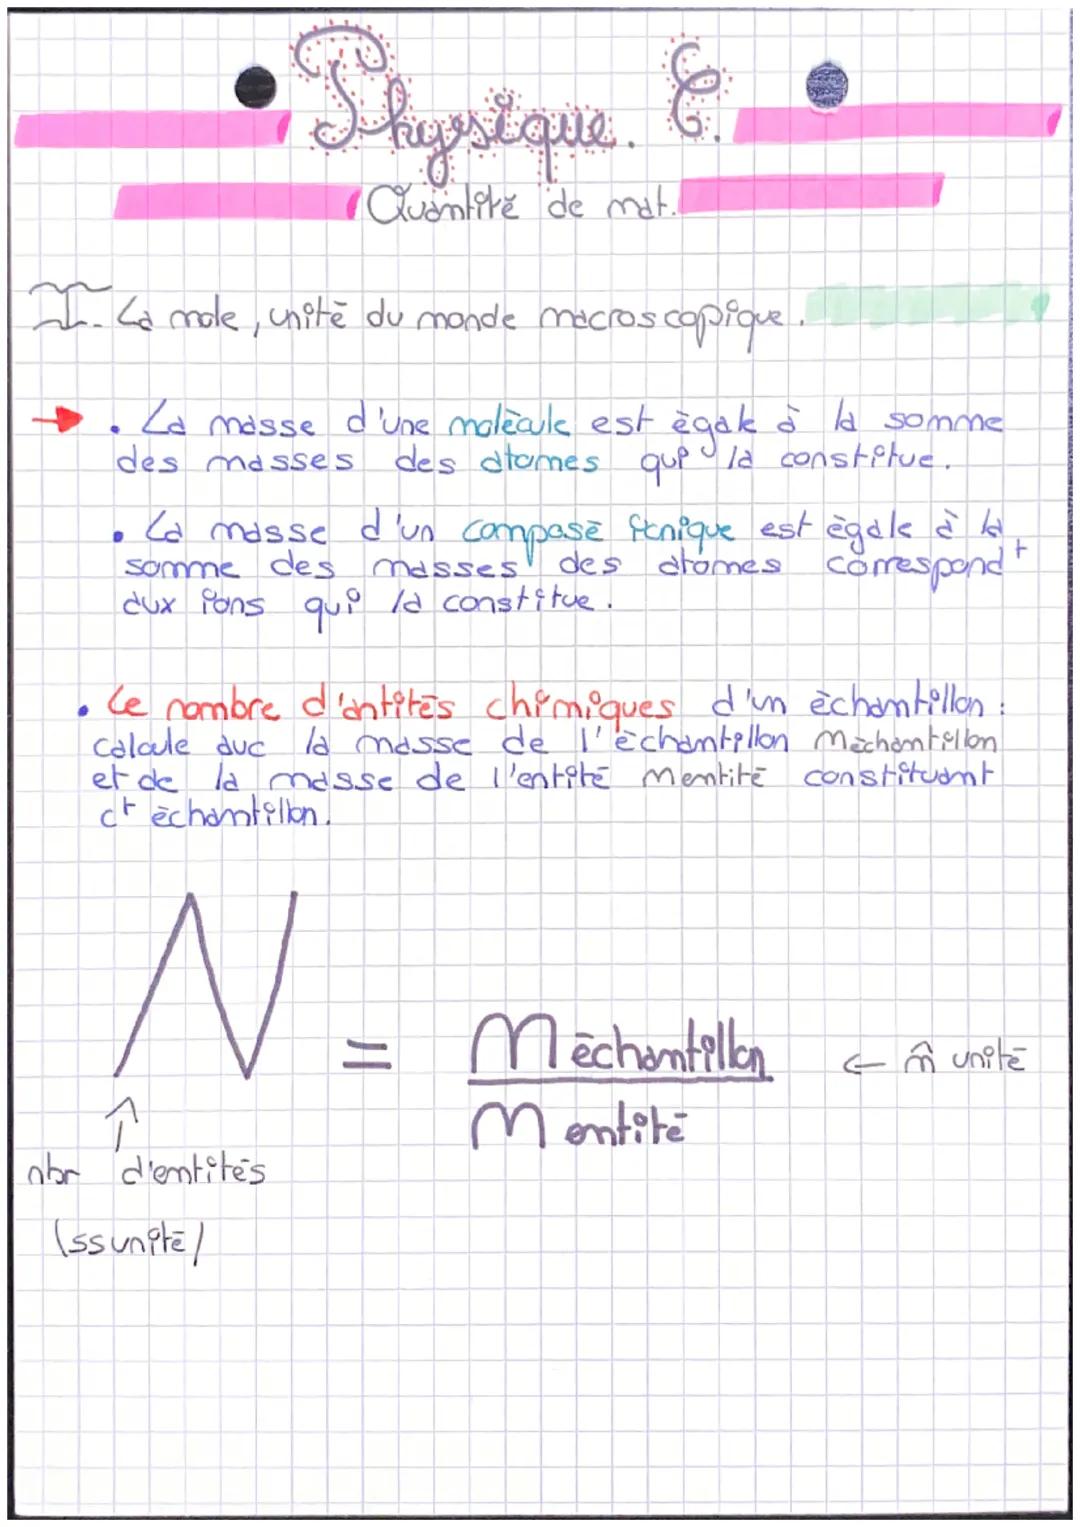 Physique. C.
Quantité de mat.
I. La mole, unité du monde macroscopique.
→ • La masse d'une molècule est ègale à la somme
des masses des atomes qui la constitue.
• La masse d'un composé ionique est ègale à la
somme des masses des atomes correspondt
aux ions qui la constitue.
• Le nombre d'entités chimiques d'un èchantillon :
calcule avc la masse de l'èchantillon mèchantillon
et de la masse de l'entité mentité constituant
ct èchantillon.
N = méchantillon ← m̂ unité
mentité
↑
nbr d'entités
(ss unité)